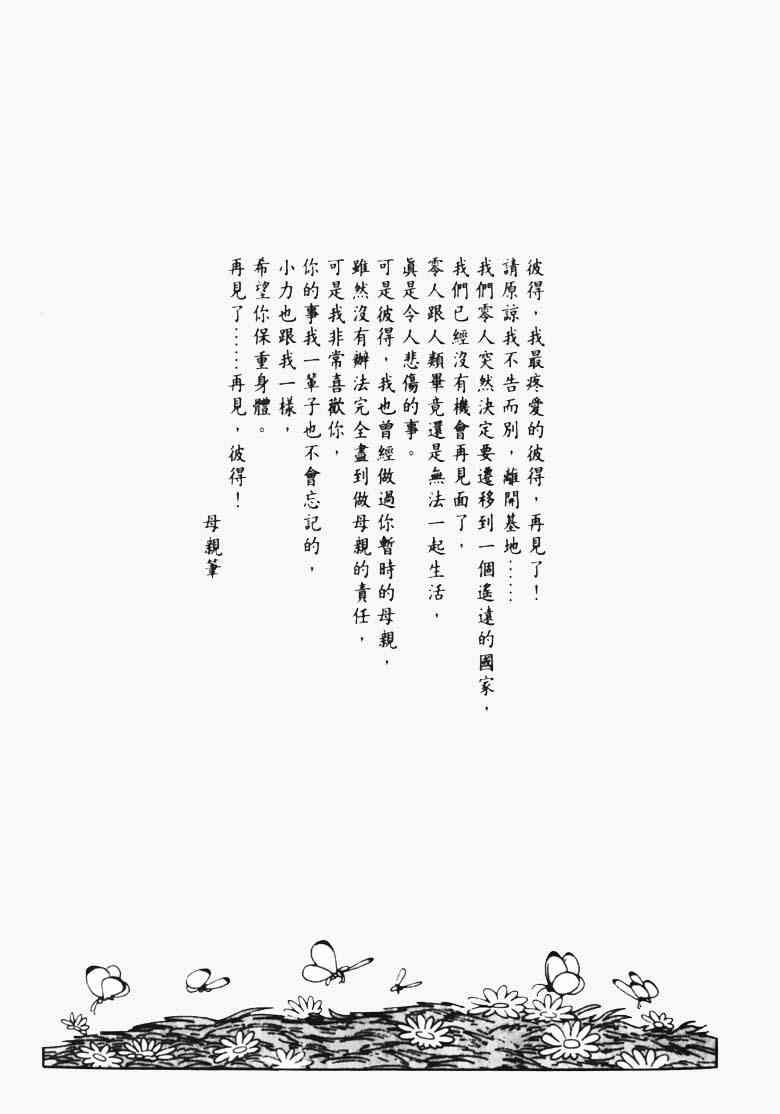 彼得，我最疼愛的彼得，再見了！
請原諒我不告而別，離開基地……
我們零人突然決定要遷移到一個遙遠的國家，
我們已經沒有機會再見面了，
零人跟人類畢竟還是無法一起生活，
眞是令人悲傷的事。
可是彼得，我也曾經做過你暫時的母親，
雖然沒有辦法完全盡到做母親的責任，
可是我非常喜歡你，
你的事我一輩子也不會忘記的，
小力也跟我一樣，
希望你保重身體。
再見了……再見，彼得！
母親筆